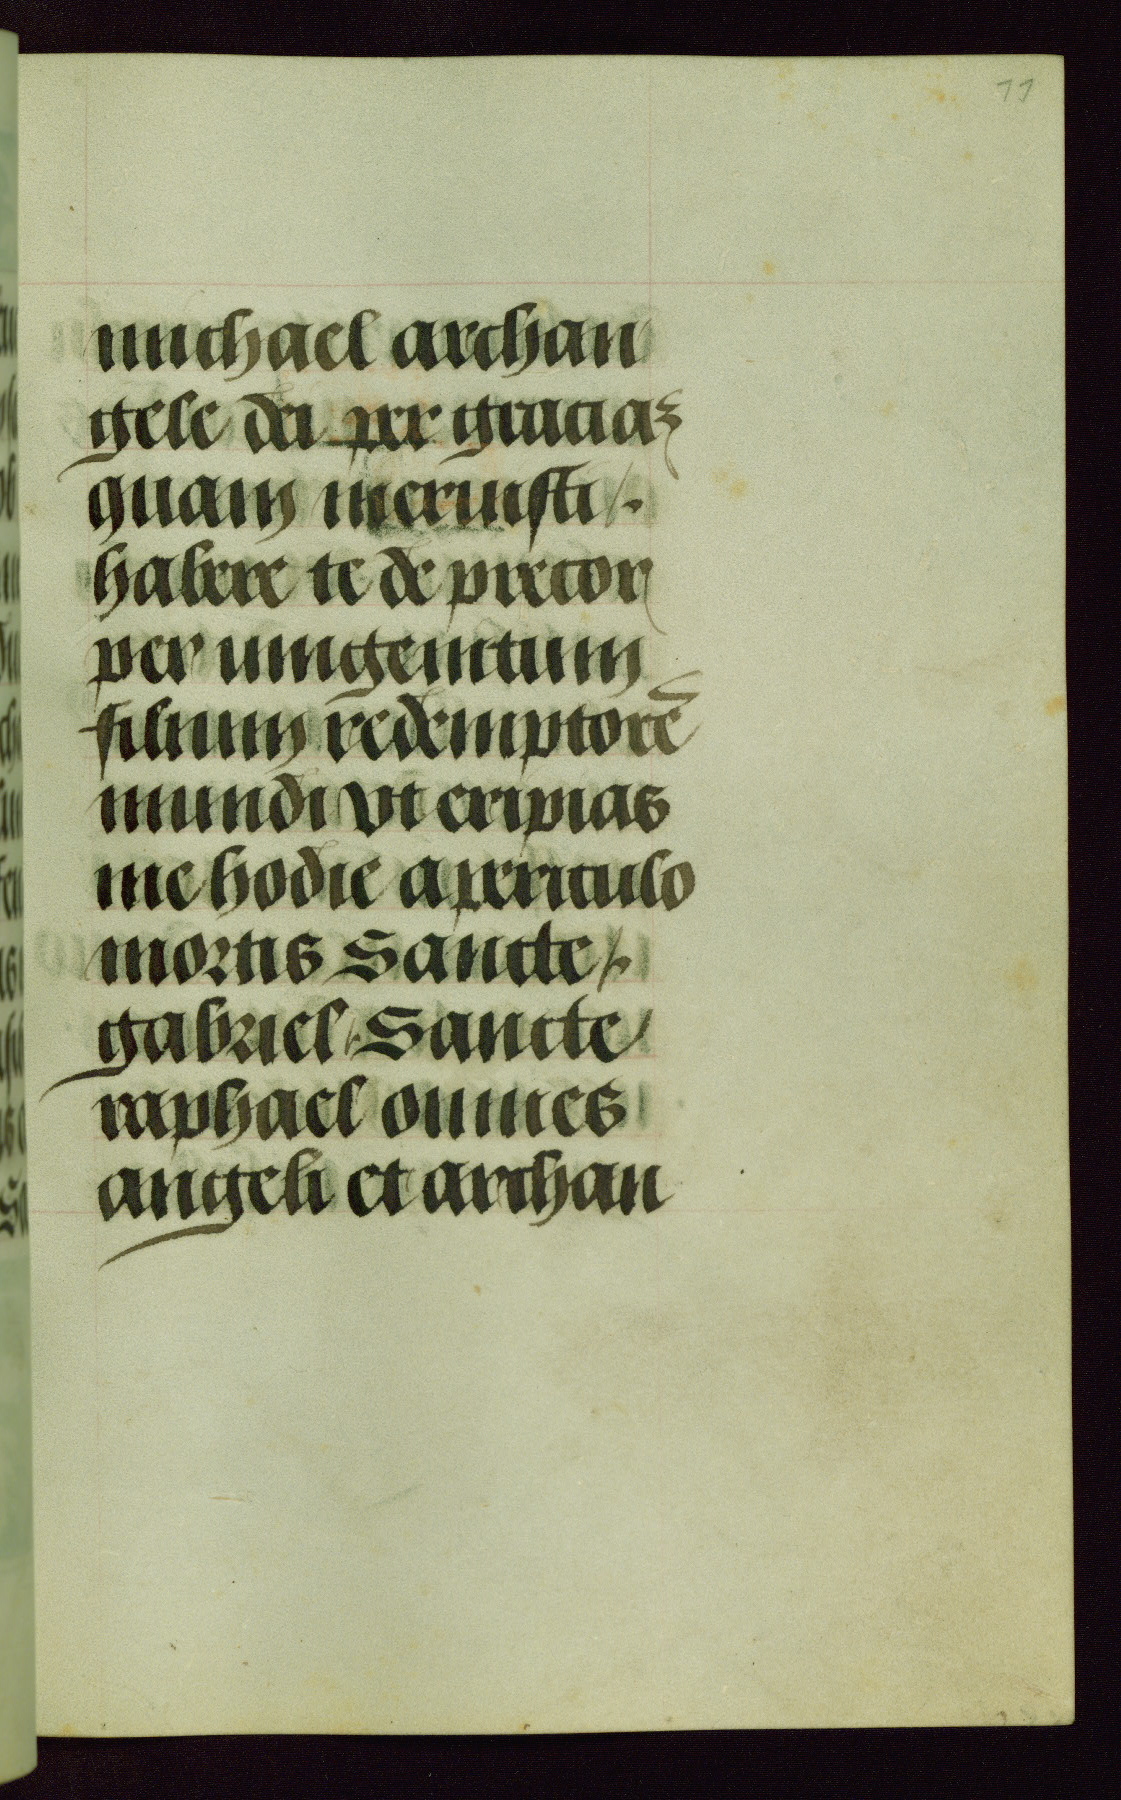 11
michael archan
gele dei per graciaʒ
quam meruisti /.
habere te de precor
per unigenitum
filium redemptorē
mundi vt eripias
me hodie a periculo
mortis Sancte /.
gabriel /. Sancte
raphael omnes
angeli et archan